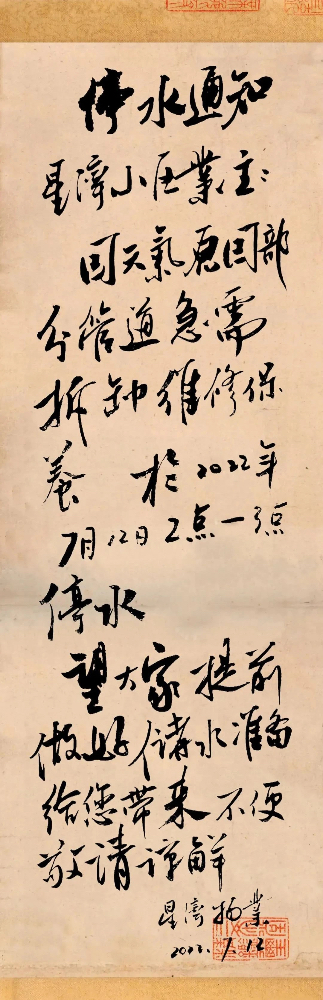 停水通知
星濟小区業主:
因天氣原因部
分管道急需
拆卸維修保
養 於2022年
7月12日2点一3点
停水
望大家提前
做好储水准备
给您带来不便
敬请谅解
星濟物業
2022.7.12